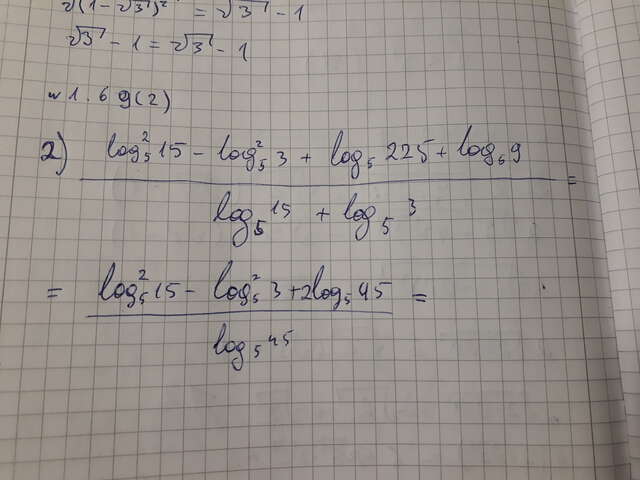 √(1-√3)² = √3 - 1
√3 - 1 = √3 - 1
N 1.69(2)
2) (log²₅ 15 - log²₅ 3 + log₅ 225 + log₅ 9) / (log₅ 15 + log₅ 3) =
= (log²₅ 15 - log²₅ 3 + 2log₅ 45) / (log₅ 45) =